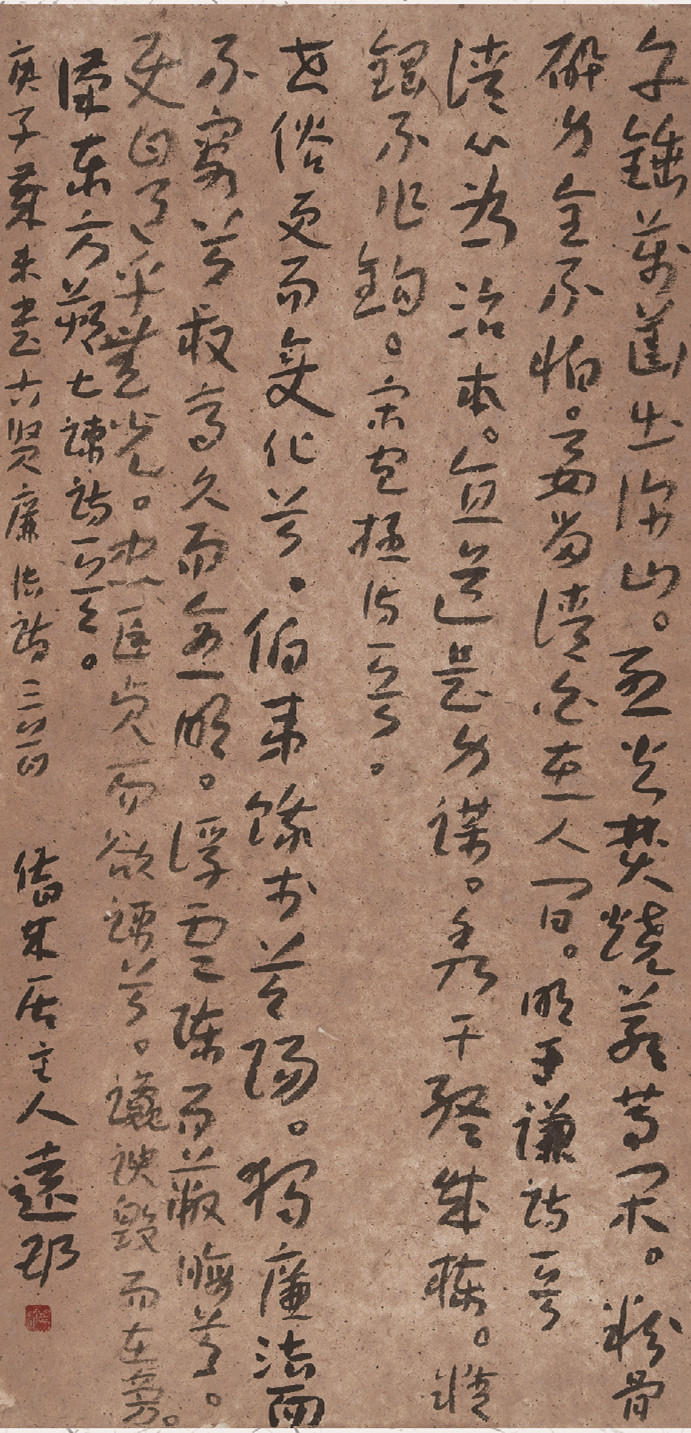 千錘萬鑿出深山。烈火焚燒若等閑。粉骨
碎身全不怕。要留清白在人間。明于謙詩一首
清心為治本。直道是身謀。秀幹終成棟。精
鋼不作鉤。宋包拯詩一首。
世俗更而變化兮。伯夷餓於首陽。獨廉潔而
不容兮叔齊久而逾明。浮雲陳而蔽晦兮。
使日月乎無光。忠臣貞而欲諫兮。讒諛毀而在旁。
漢東方朔七諫詩一首。
庚子書古賢廉潔詩三首 居主人遠邨